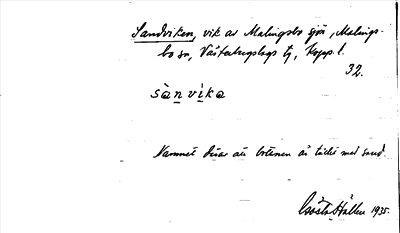 Sandviken, vik av Malingsbo sjön, Malings-
bo sn, Västerbergslags tg, Kopp. l.
32.
sànvika
Namnet visar att bottnen är täckt med sand.
Gösta Hallen 1935.